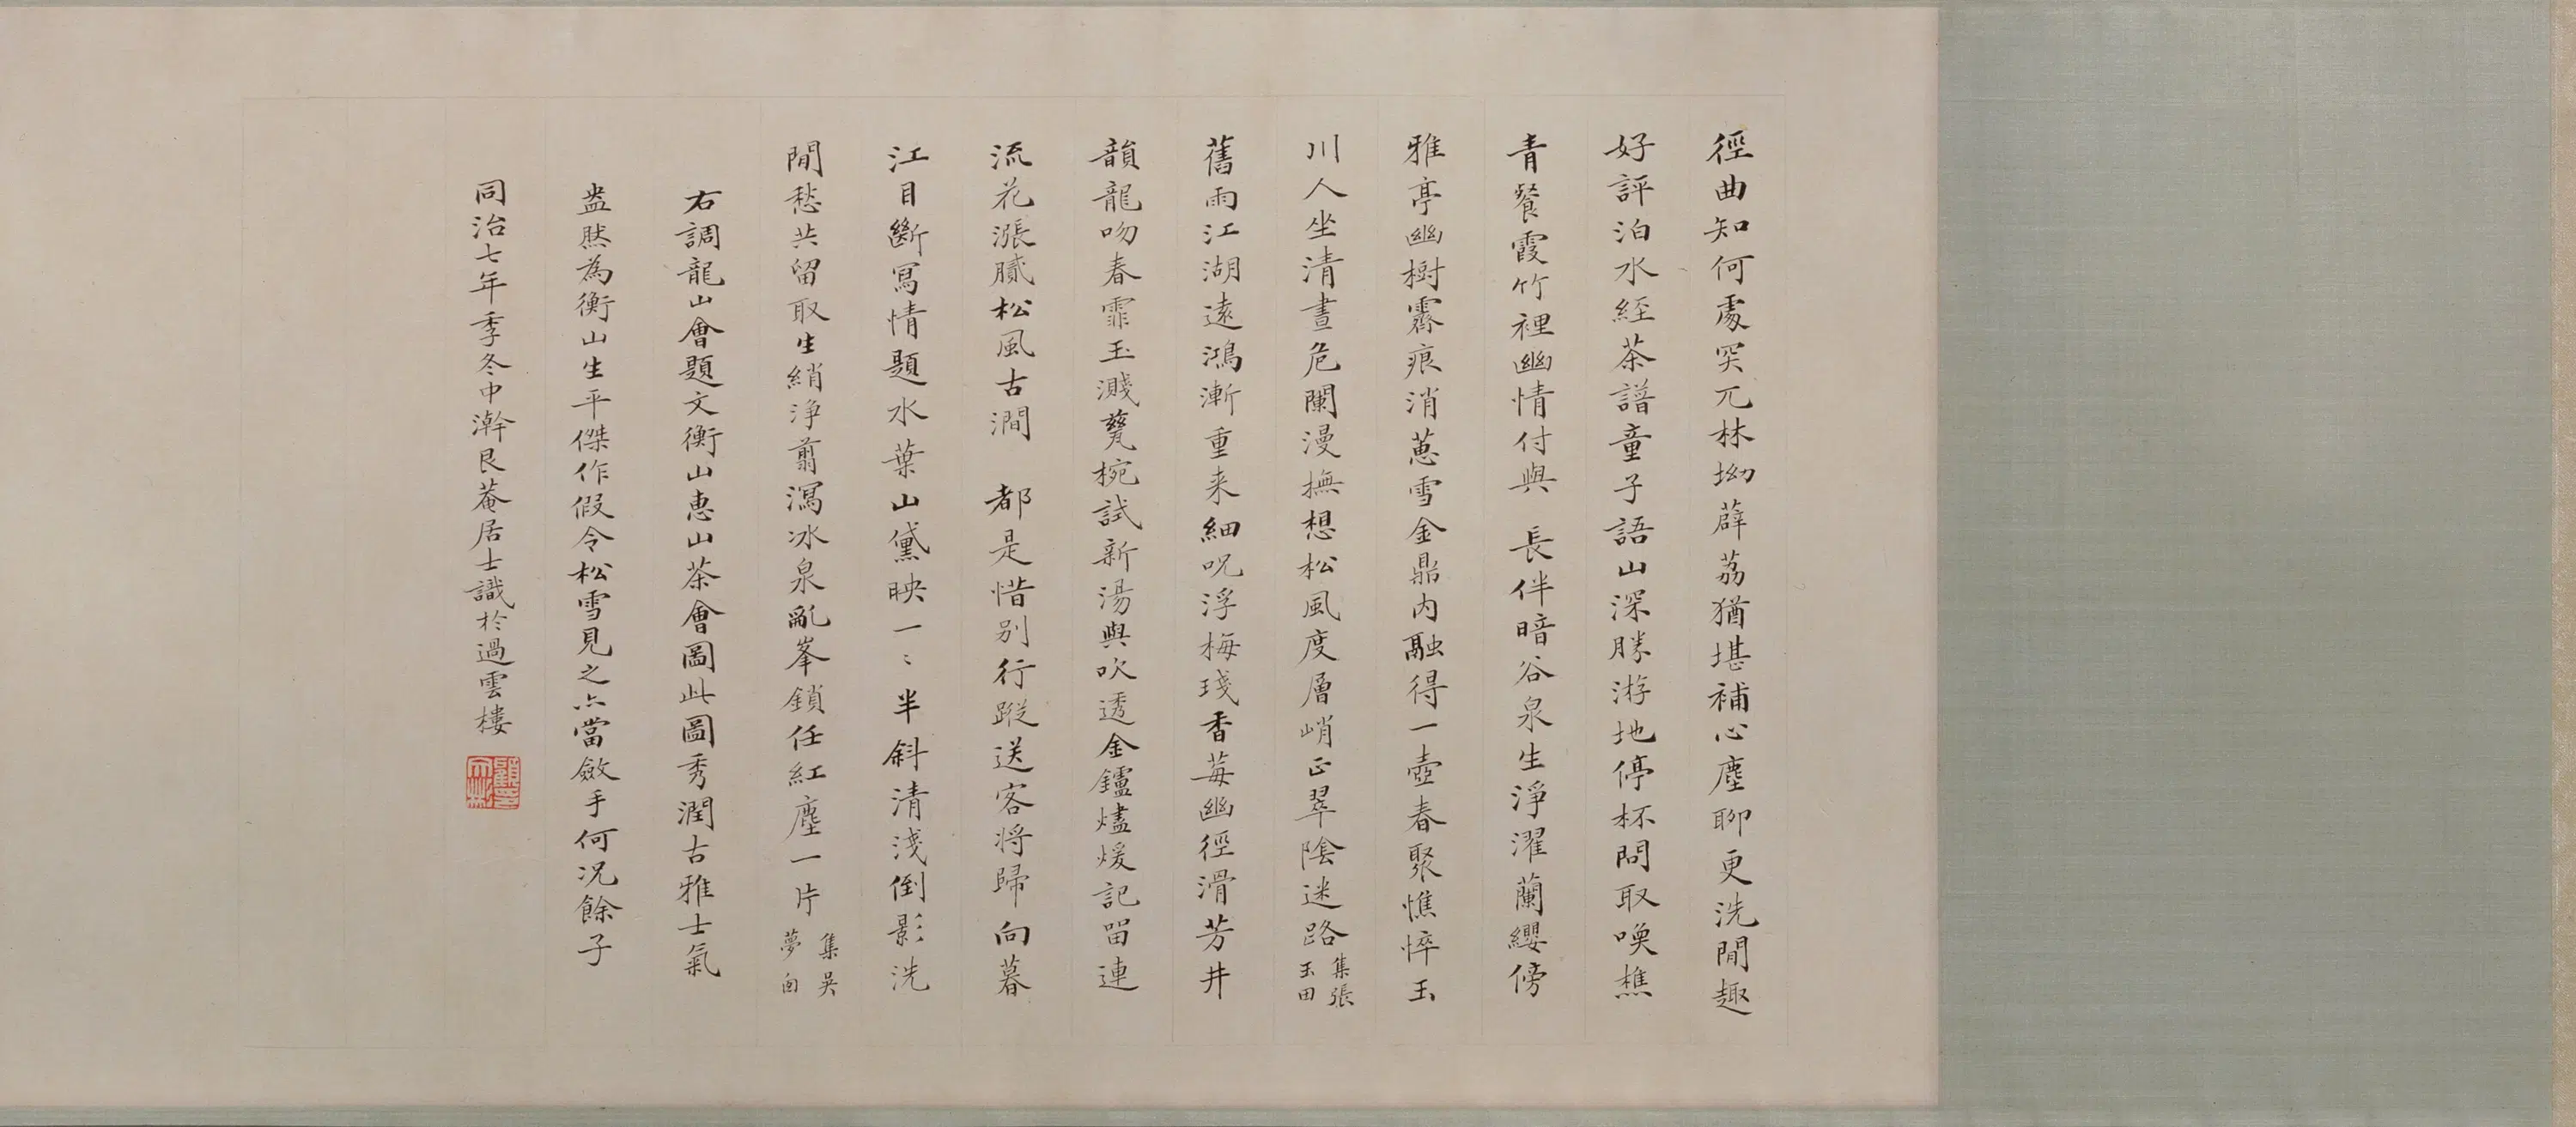 徑曲知何處突兀林坳薜荔猶堪補心塵聊更洗閒趣
好評泊水經茶譜童子語山深勝游地停杯問取喚樵
青餐霞竹裡幽情付與　長伴暗谷泉生淨濯蘭纓傍
雅亭幽樹霽痕消蒽雪金鼎內融得一壺春聚憔悴玉
川人坐清晝危闌漫撫想松風度層峭正翠陰迷路集張玉田
舊雨江湖遠鴻漸重來細呪浮梅琖香莓幽徑滑芳井
韻龍吻春霏玉濺甆椀試新湯與吹透金鑪燼煖記留連
流花漲膩松風古澗　都是惜別行蹤送客將歸向暮
江目斷寫情題水葉山黛映一〻半斜清淺倒影洗
閒愁共留取生綃淨翦瀉冰泉亂峯鎖任紅塵一片集吳夢囱
右調龍山會題文衡山惠山茶會圖此圖秀潤古雅士氣
盎然為衡山生平傑作假令松雪見之亦當斂手何況餘子
同治七年季冬中澣艮菴居士識於過雲樓